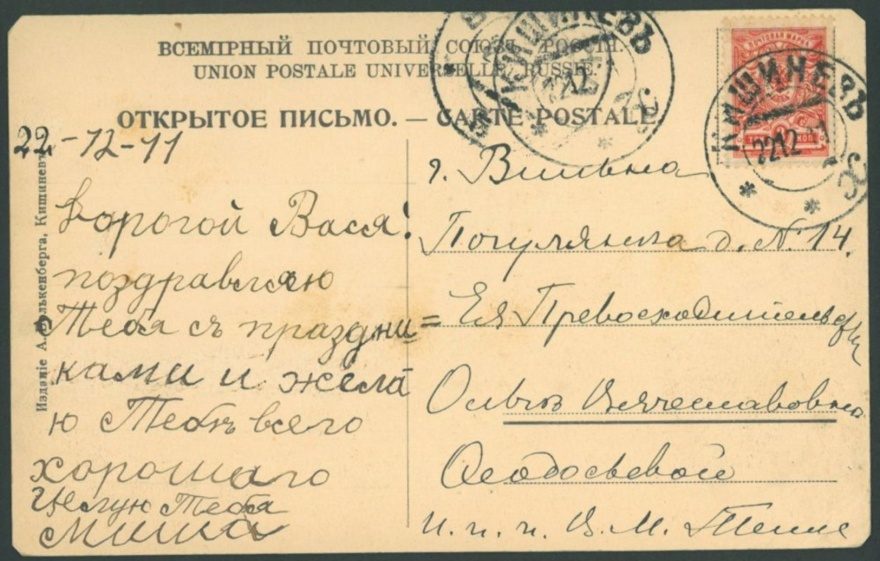 ВСЕМІРНЫЙ ПОЧТОВЫЙ СОЮЗЪ. РОССІЯ.
UNION POSTALE UNIVERSELLE. RUSSIE.
ОТКРЫТОЕ ПИСЬМО. — CARTE POSTALE
КИШИНЕВЪ
КИШИНЕВЪ
2212
22-12-11
Дорогой Вася!
поздравляю
Тебя съ праздни=
ками и жела
ю Тебѣ всего
хорошаго
Цѣлую Тебя
Миша
г. Вильна
Погулянка д. N. 14.
Ея Превосходительству
Ольгѣ Вячеславовнѣ
Ѳеодосьевой
В. М.
Изданіе А. Фалькенберга, Кишиневъ